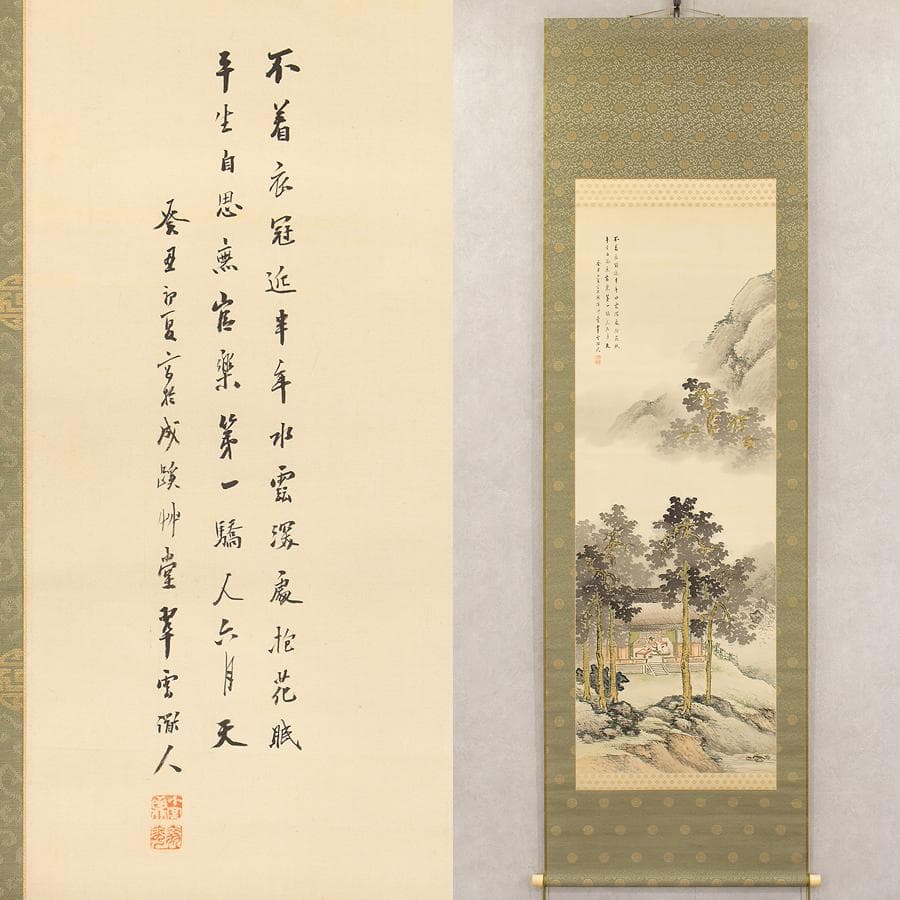 不着衣冠近半年水雲深處抱花眠
平生自思無官樂第一驕人六月天
癸丑初夏寫於成蹊艸堂翠雲散人